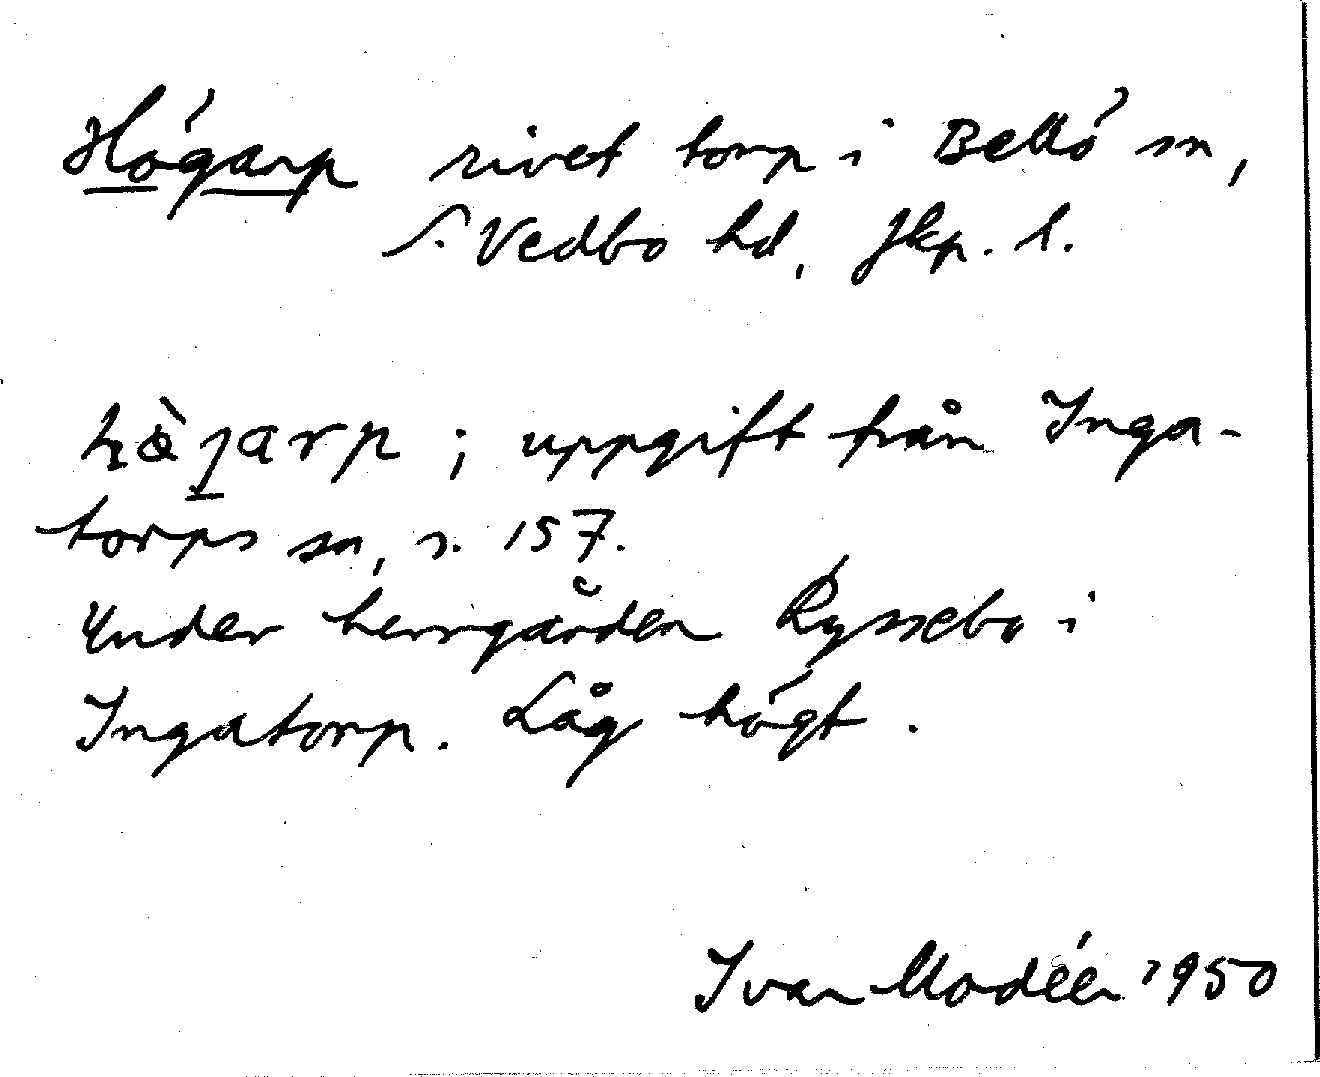 Högarp rivet torp i Bellö sn,
S. Vedbo hd, Jkp. l.
hö̀jarp ; uppgift från Inga-
torps sn, s. 157.
Under herrgården Ryssebo i
Ingatorp. Låg högt.
Ivar Modéer 1950